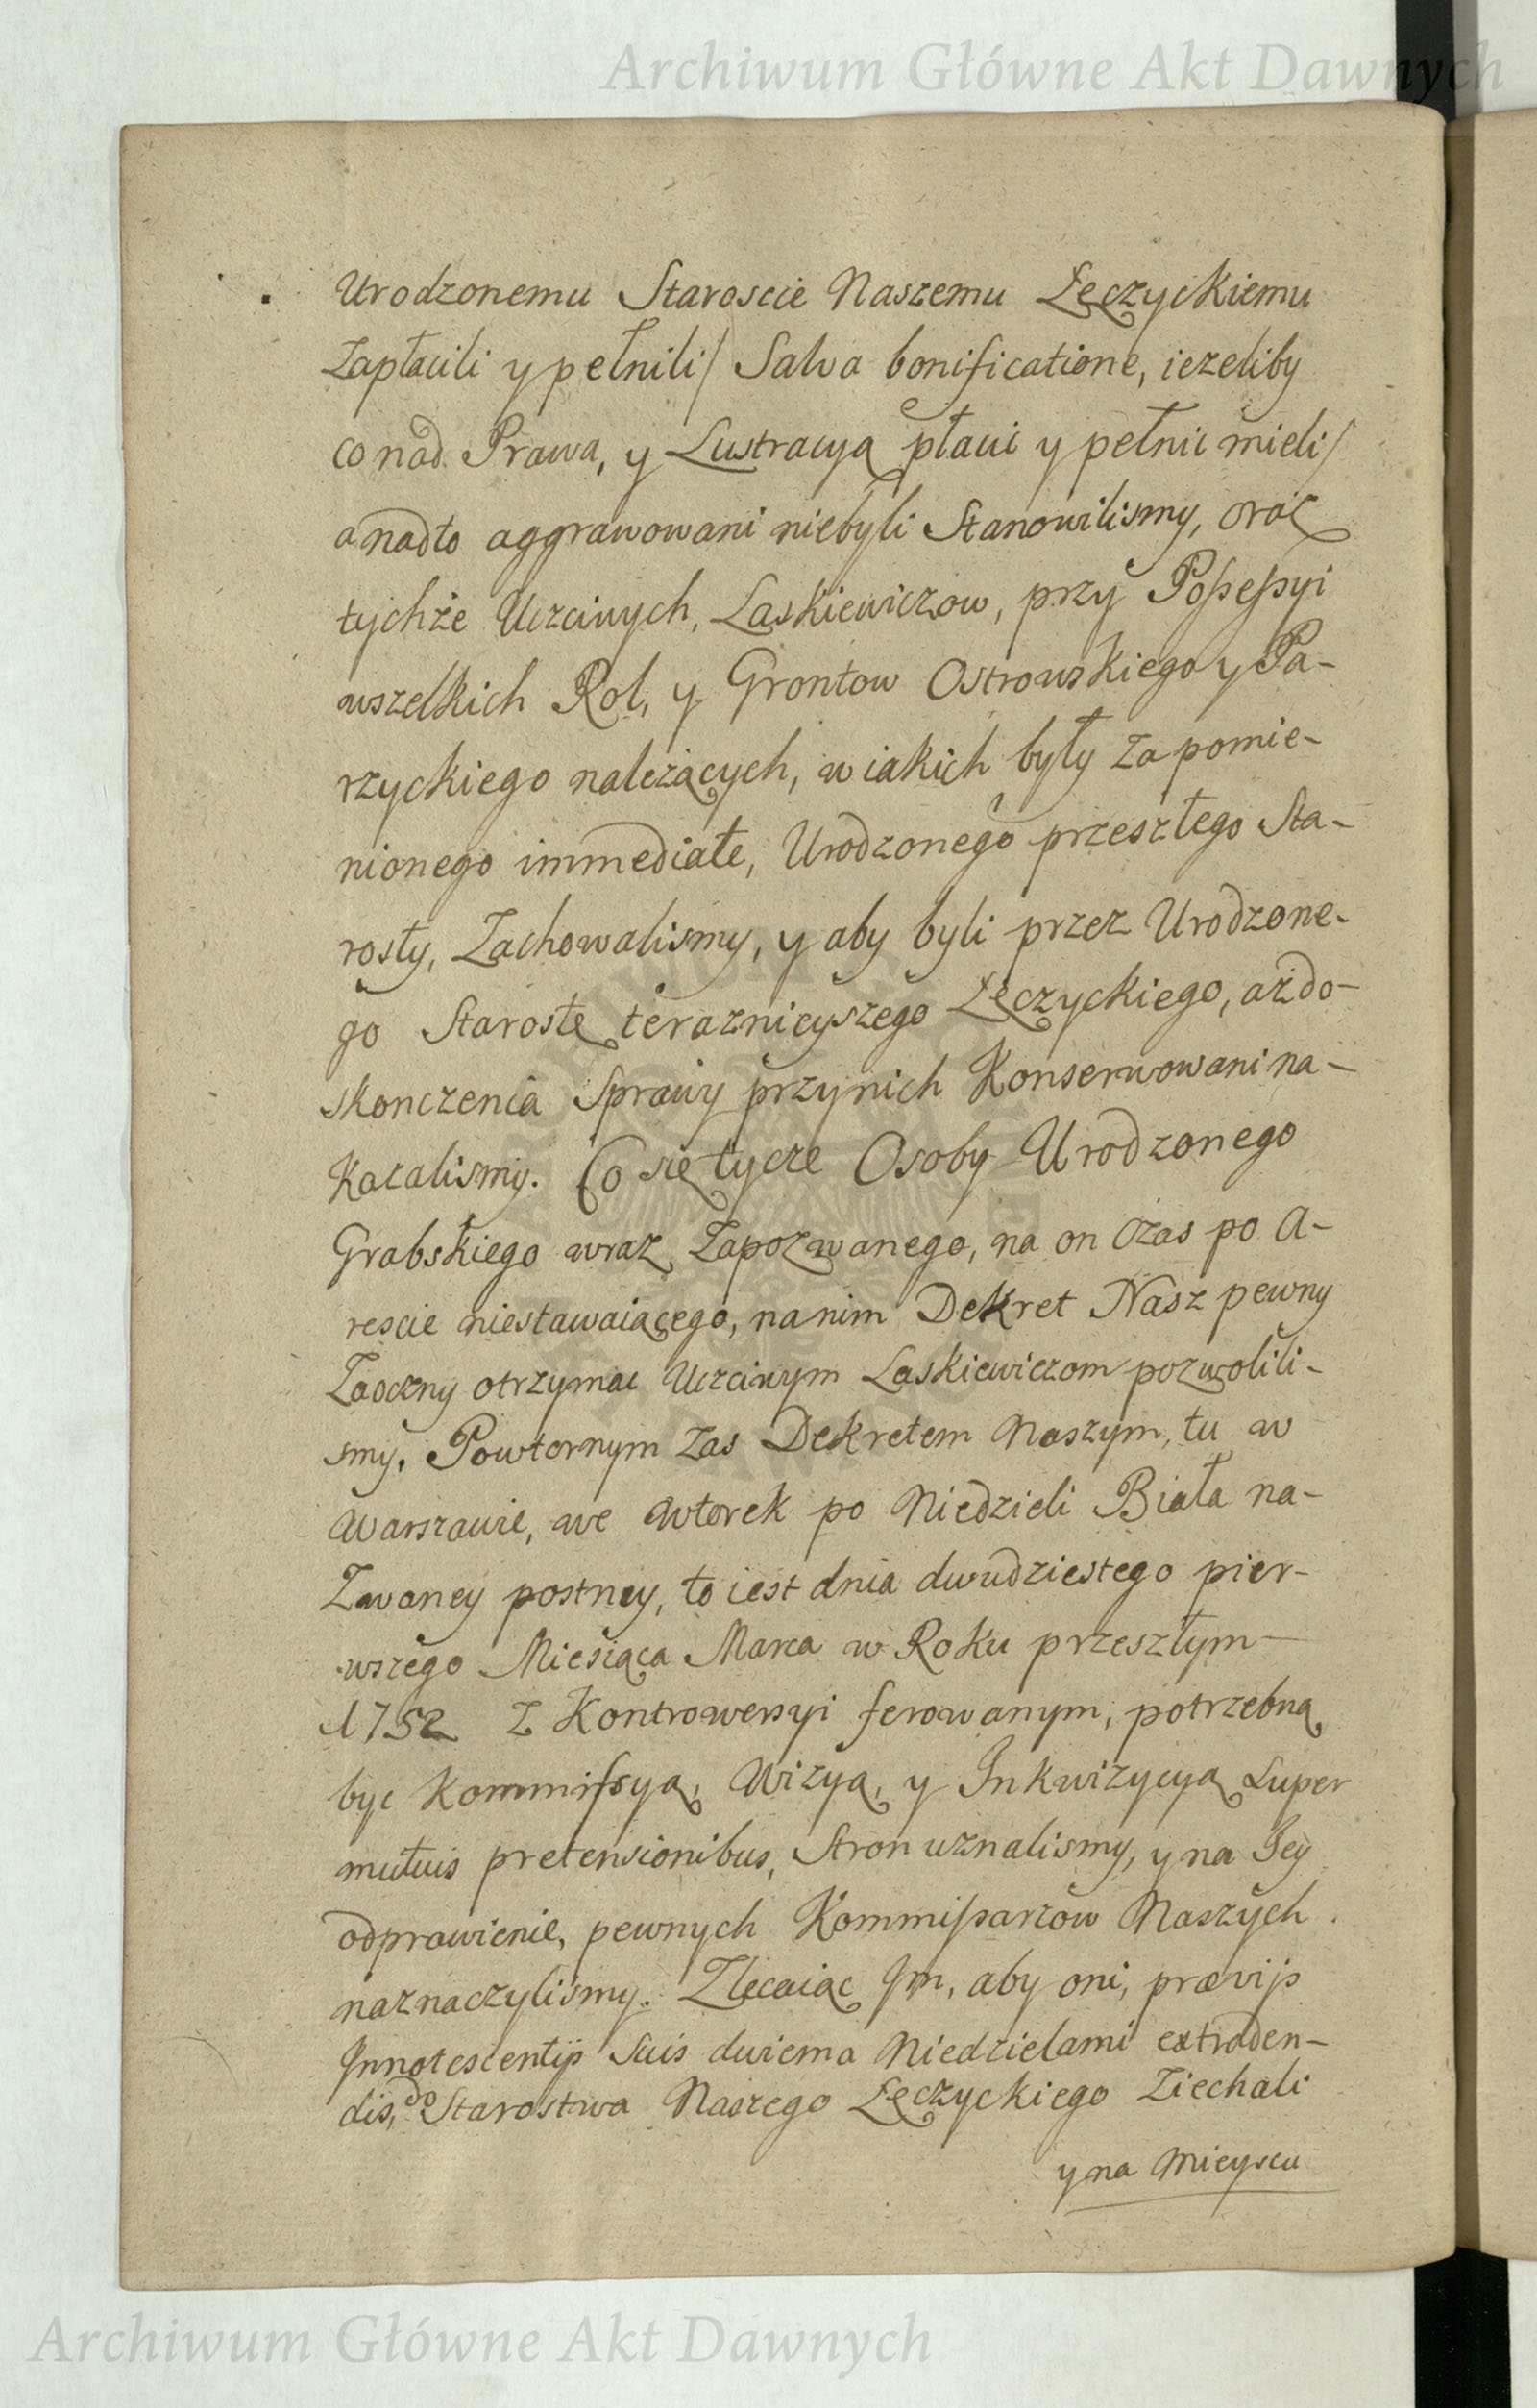 Archiwum Główne Akt Dawnych
Urodzonemu Staroscie Naszemu Łęczyckiemu
Zapłacili y pełnili/ Salva bonificatione, iezeliby
co nad Prawa, y Lustracyą płacic y pełnic mieli/
a nadto aggrawowani niebyli Stanowilismy, oraz
tychże Uczciwych, Laskiewiczow, przy Possessyi
wszelkich Rol, y Grontow Ostrowskiego y Pa-
rzyckiego należących, w iakich były za pomie-
nionego immediate, Urodzonego przeszłego Sta-
rosty, Zachowalismy, y aby byli przez Urodzone-
go Starostę teraznieyszego Łęczyckiego, aż do-
skonczenia Sprawy przynich Konserwowani na-
kazalismy. Co się tycze Osoby Urodzonego
Grabskiego wraz Zapozwanego, na on czas po A-
rescie niestawaiącego, na nim Dekret Nasz pewny
Zaoczny otrzymac Uczciwym Laskiewiczom pozwolili-
smy. Powtornym zas Dekretem Naszym, tu w
Warszawie, we Wtorek po Niedzieli Biała na-
Zwaney postney, to iest dnia dwudziestego pier-
wszego Miesiąca Marca w Roku przeszłym-
1752 z Kontrowersyi ferowanym, potrzebną
byc Kommissyą, Wizyą, y Inkwizycyą Super
mutuis pretensionibus, Stron uznalismy, y na Jey
odprawienie, pewnych Kommissarzow Naszych
naznaczylismy. Zlecaiąc Im, aby oni, prævijs
Innotescentijs Suis dwiema Niedzielami extraden-
dis, do Starostwa Naszego Łęczyckiego Ziechali
y na Mieyscu
Archiwum Główne Akt Dawnych